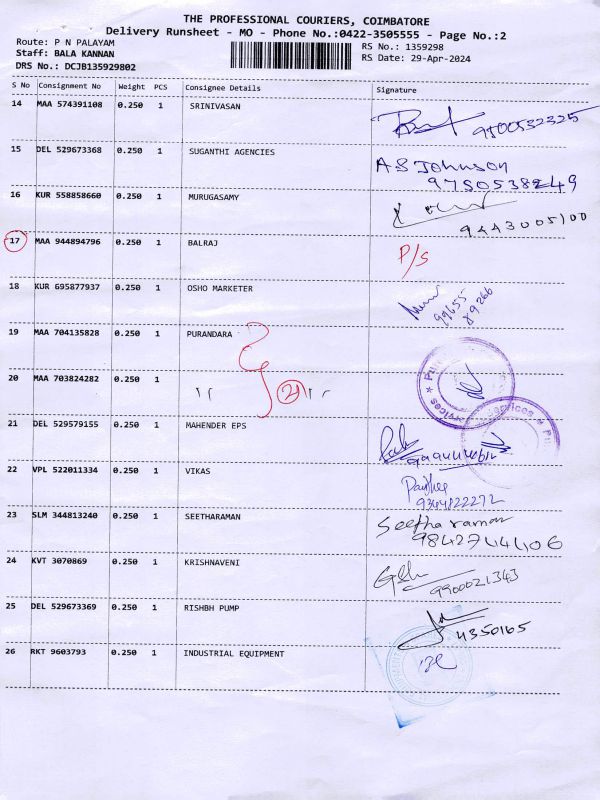 THE PROFESSIONAL COURIERS, COIMBATORE
Delivery Runsheet - MO - Phone No.:0422-3505555 - Page No.:2
Route: P N PALAYAM
RS No.: 1359298
Staff: BALA KANNAN
RS Date: 29-Apr-2024
DRS No.: DCJB135929802
S No Consignment No Weight PCS Consignee Details Signature
14 MAA 574391108 0.250 1 SRINIVASAN
9500532325
15 DEL 529673368 0.250 1 SUGANTHI AGENCIES
A S Johnson
16 KUR 558858660 0.250 1 MURUGASAMY
9443005100
17 MAA 944894796 0.250 1 BALRAJ
P/S
18 KUR 695877937 0.250 1 OSHO MARKETER
99655
89266
19 MAA 704135828 0.250 1 PURANDARA
20 MAA 703824282 0.250 1 ı ı 21 ı ı
21 DEL 529579155 0.250 1 MAHENDER EPS
22 VPL 522011334 0.250 1 VIKAS
9364822272
23 SLM 344813240 0.250 1 SEETHARAMAN
Seetha raman
9842744406
24 KVT 3070869 0.250 1 KRISHNAVENI
9900021343
25 DEL 529673369 0.250 1 RISHBH PUMP
4350165
26 RKT 9603793 0.250 1 INDUSTRIAL EQUIPMENT